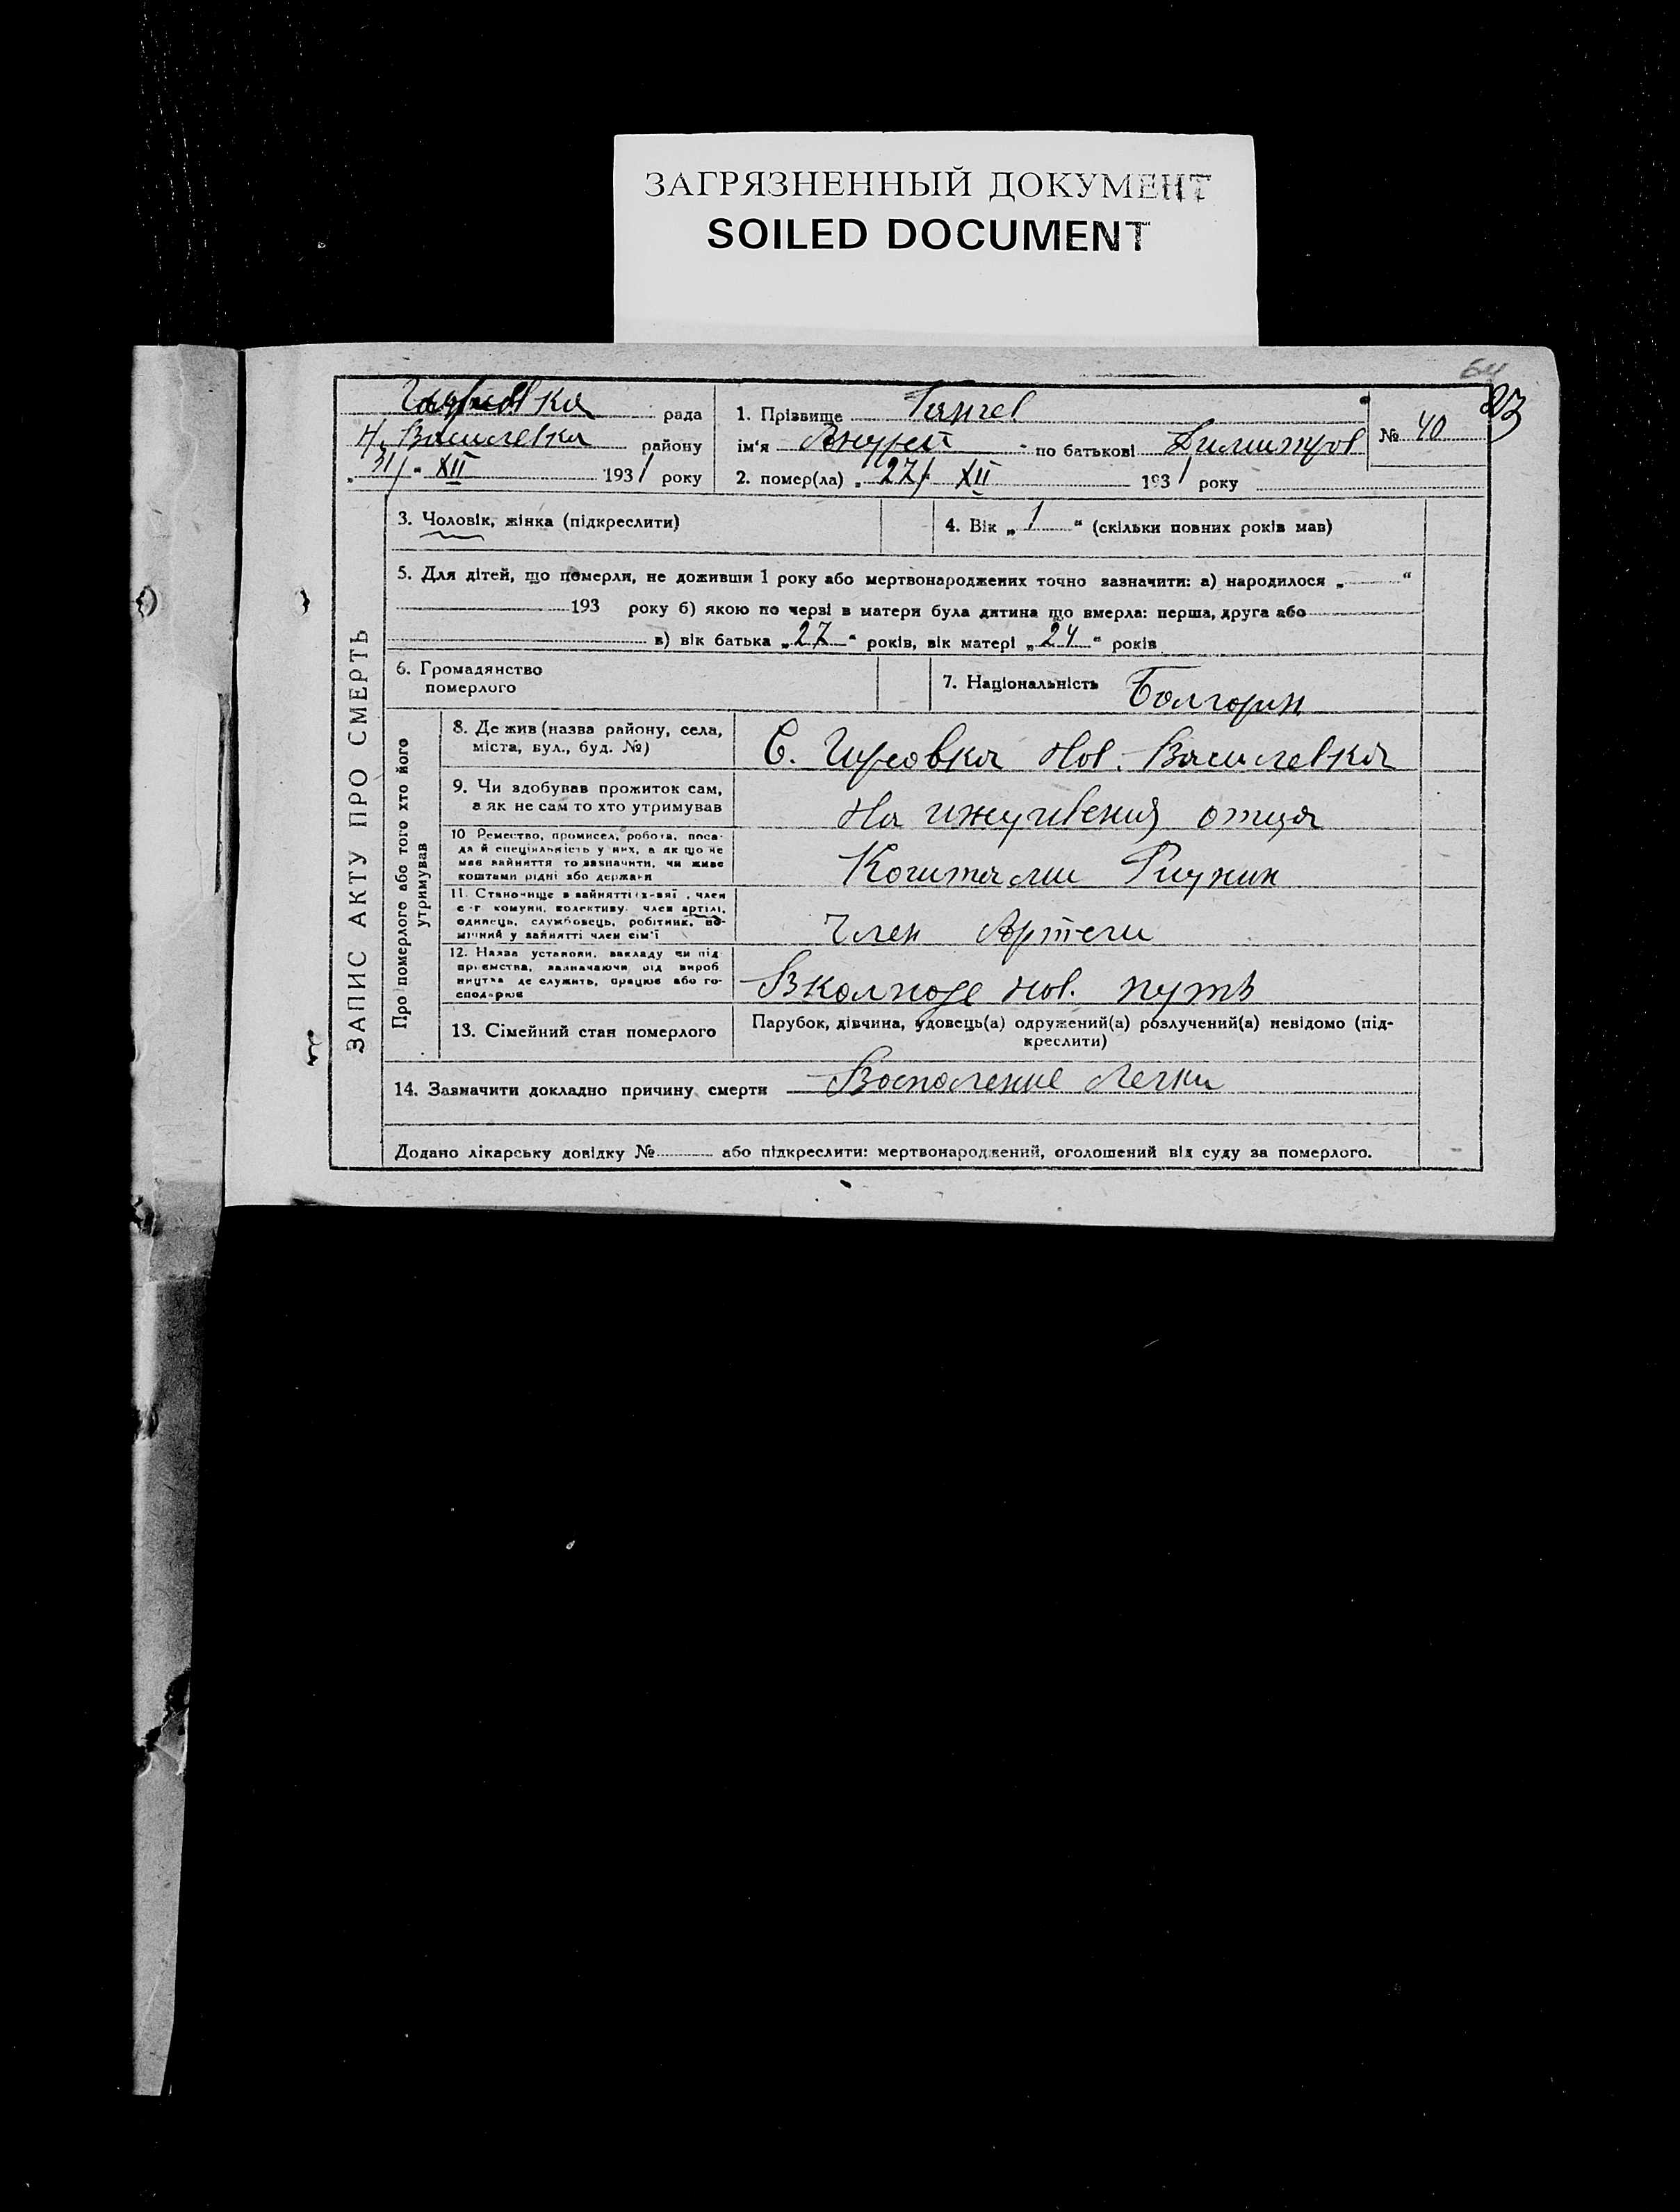 ЗАГРЯЗНЕННЫЙ ДОКУМЕНТ
SOILED DOCUMENT
64
23
рада
Н. Василевка району
„ 31/ “ XII 1931 року
1. Прізвище Ганчев
ім'я Андрей по батькові Димитров
№ 40
2. помер(ла) „ 27/ XII 1931 року
ЗАПИС АКТУ ПРО СМЕРТЬ
3. Чоловік, жінка (підкреслити)
4. Вік „ 1 “ (скільки повних років мав)
5. Для дітей, що померли, не доживши 1 року або мертвонароджених точно зазначити: а) народилося „ “
193 року б) якою по черзі в матери була дитина що вмерла: перша, друга або
в) вік батька „ 27 “ років, вік матері „ 24 “ років
6. Громадянство
померлого
7. Національність Болгорин
Про померлого або того хто його
утримував
8. Де жив (назва району, села,
міста, вул., буд. №)
С. Гирсовка Нов. Василевка
9. Чи здобував прожиток сам,
а як не сам то хто утримував
На иждивения отца
10 Ремество, промисел, робота, поса-
да й спеціяльність у них, а як що не
має зайняття то зазначити, чи живе
коштами рідні або держави
Коштами
11. Становище в зайнятті х-вяї, член
с-г комуни, колективу, член артілі,
одинець, службовець, робітник, по-
мічний у зайнятті член сім'ї
Член Артели
12. Назва установи, закладу чи під-
приємства, зазначаючи рід вироб
ництва де служить, працює або го-
сподарює
Вколхозе Нов. путь
13. Сімейний стан померлого
Парубок, дівчина, удовець(а) одружений(а) розлучений(а) невідомо (під-
креслити)
14. Зазначити докладно причину смерти Воспаление Легки
Додано лікарську довідку № або підкреслити: мертвонароджений, оголошений від суду за померлого.